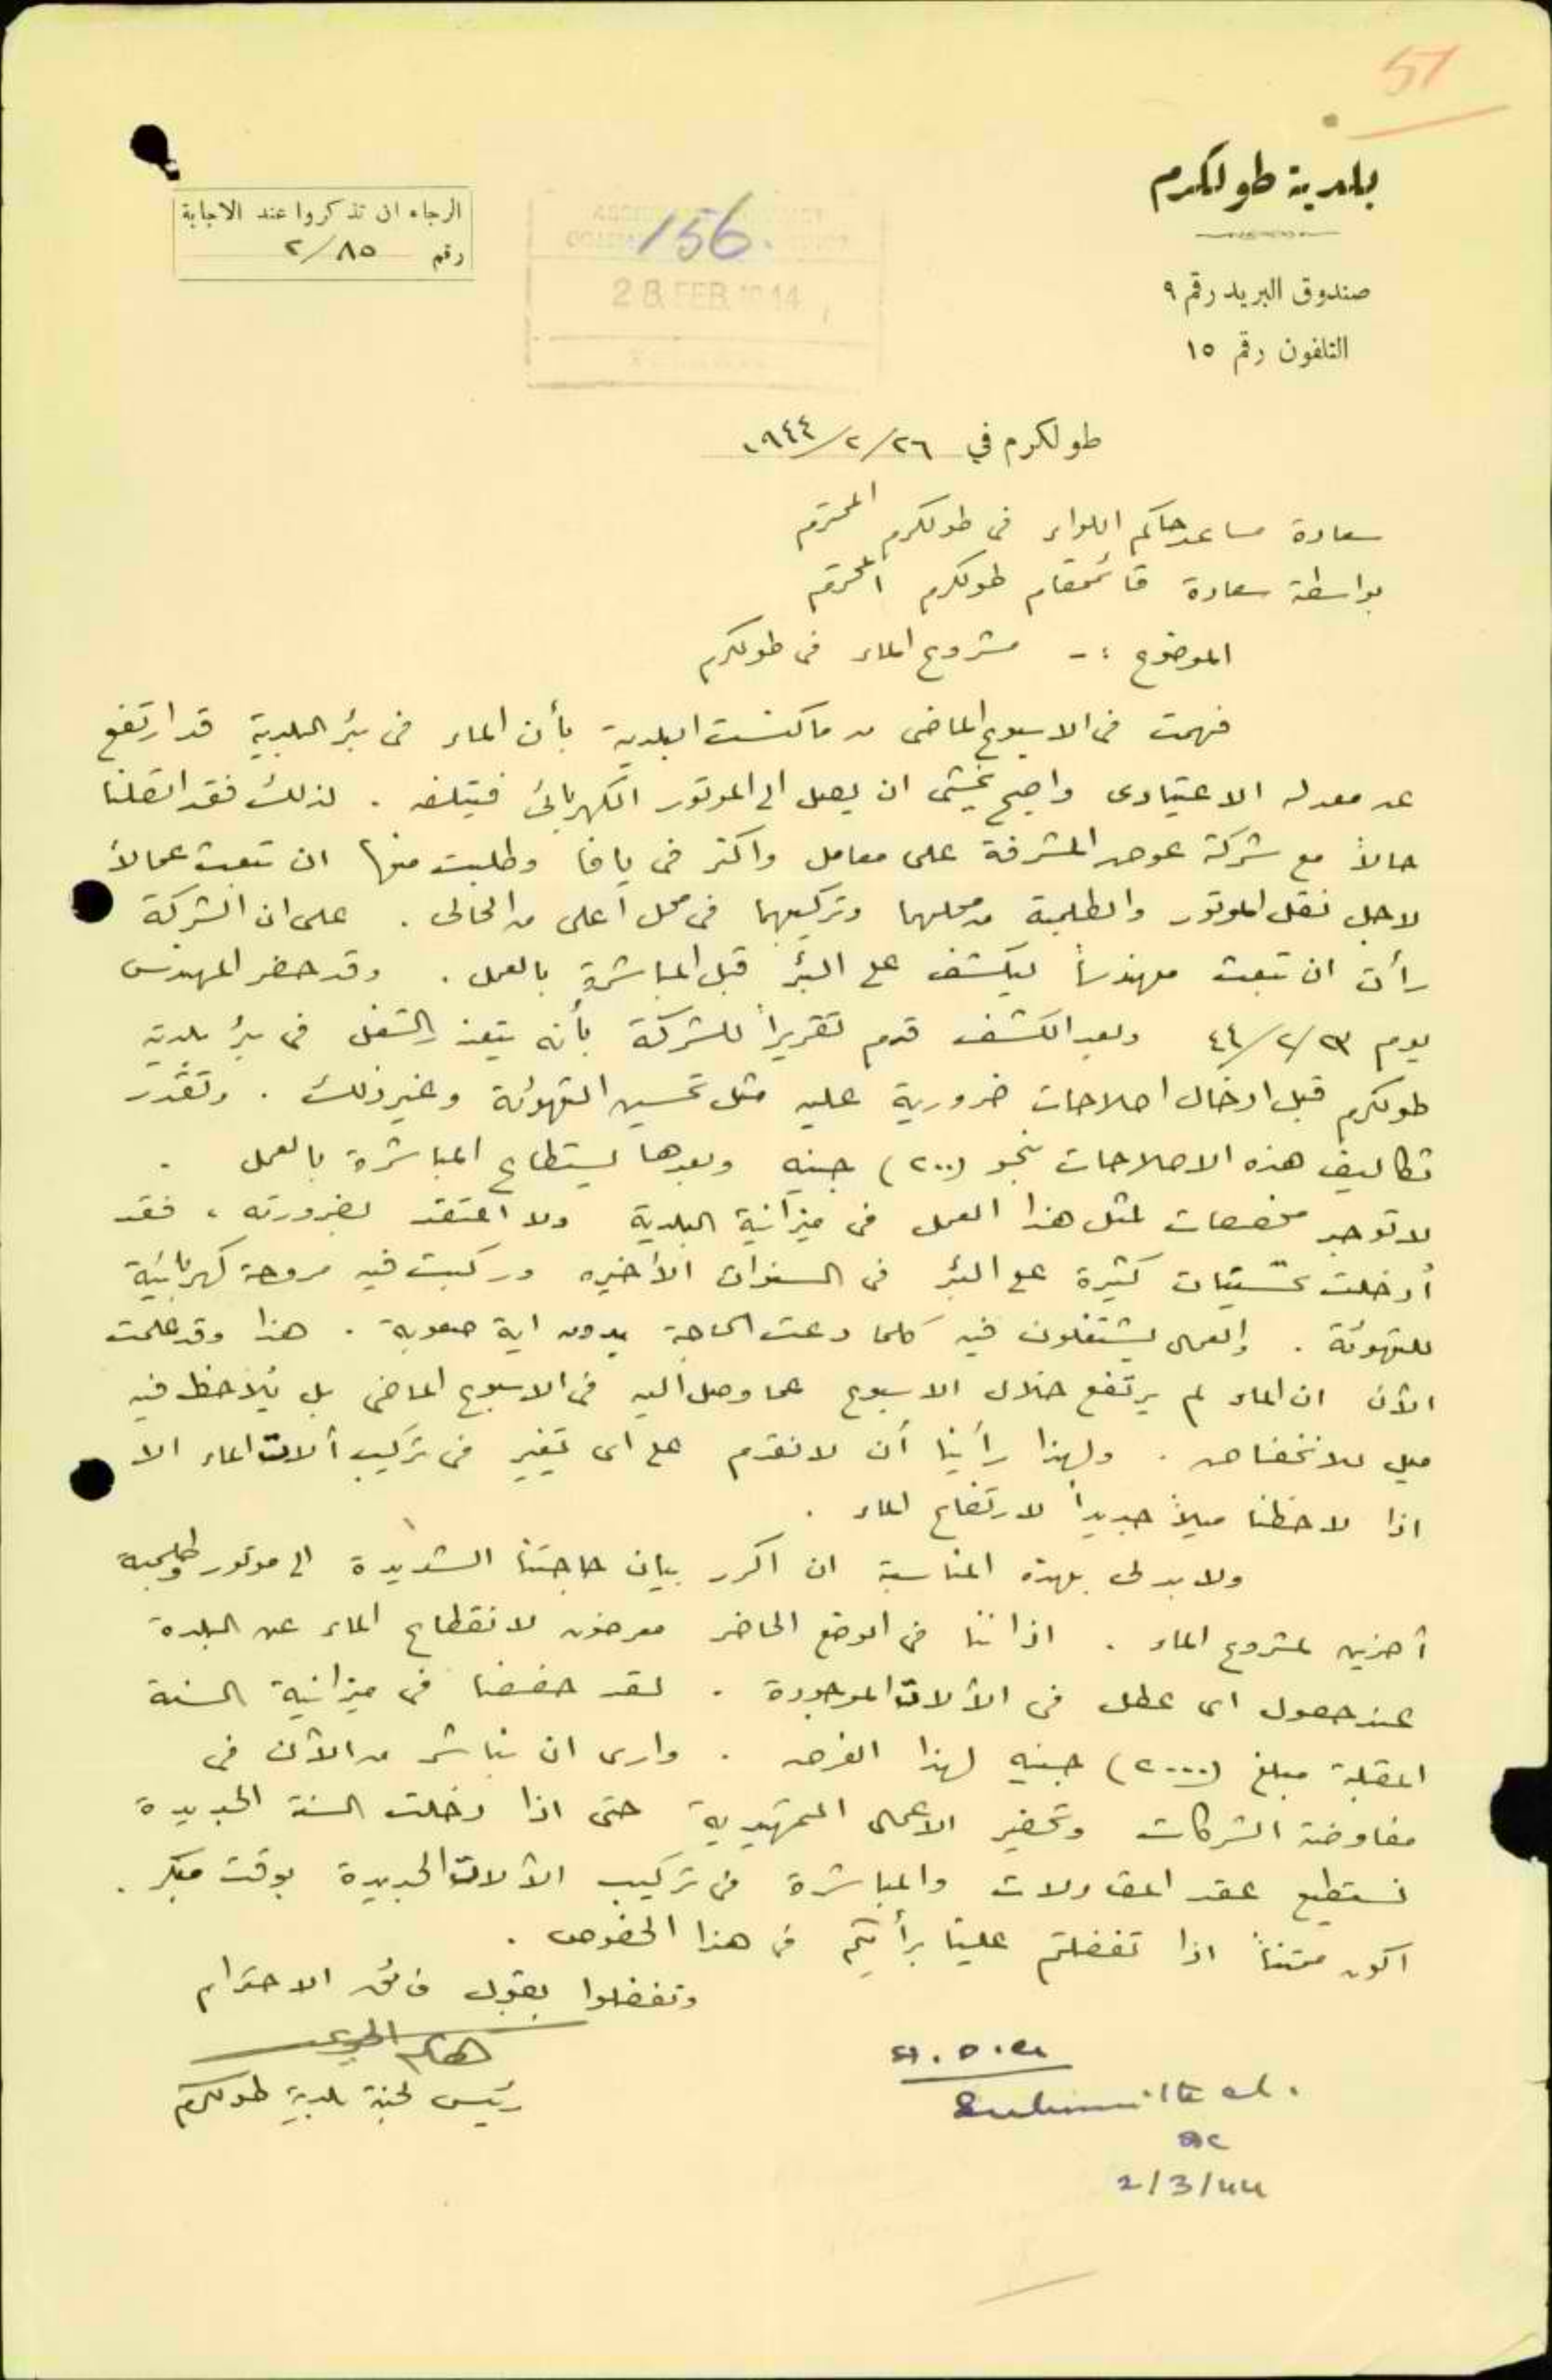 51
بلدية طولكرم
صندوق البريد رقم ٩
التلفون رقم ١٥
156.
28 FEB 1944
الرجاء ان تذكروا عند الاجابة
رقم ٢/٨٥
طولكرم في ٢٦/٢/١٩٤٤
سعادة مساعد حاكم اللواء فى طولكرم المحترم
بواسطة سعادة قائمقام طولكرم المحترم
الموضوع :- مشروع الماء فى طولكرم
فهمت فى الاسبوع الماضى من ماكنست البلدية بأن الماء فى بئر البلدية قد ارتفع
عن معدله الاعتيادى واصبح يخشى ان يصل الى الموتور الكهربائى فيتلفه . لذلك فقد اتصلنا
حالاً مع شركة عوض المشرفة على معامل واكنر فى يافا وطلبت منها ان تبعث عمالاً
لاجل نقل الموتور والطلمبة من محلهما وتركيبهما فى محل أعلى من الحالى . على ان الشركة
رأت ان تبعث مهندساً ليكشف على البئر قبل المباشرة بالعمل . وقد حضر المهندس
يوم ٢٣/٢/٤٤ وبعد الكشف قدم تقريراً للشركة بأنه يتعذر الشغل فى بئر بلدية
طولكرم قبل ادخال اصلاحات ضرورية عليه مثل تحسين التهوئة وغير ذلك . وتقدر
تكاليف هذه الاصلاحات بنحو (٢٠٠) جنيه وبعدها يستطاع المباشرة بالعمل .
لا توجد مخصصات لمثل هذا العمل فى ميزانية البلدية ولا اعتقد بضرورته ، فقد
أدخلت تحسينات كثيرة على البئر فى السنوات الأخيره وركبت فيه مروحة كهربائية
للتهوئة . والعمال يشتغلون فيه كلما دعت الحاجة بدون اية صعوبة . هذا وقد علمت
الآن ان الماء لم يرتفع خلال الاسبوع عما وصل اليه فى الاسبوع الماضى بل يُلاحظ فيه
ميل للانخفاض . ولهذا رأينا أن لا نقدم على اى تغيير فى تركيب آلات الماء الا
اذا لاحظنا ميلاً جديداً لارتفاع الماء .
ولا بد لى بهذه المناسبة ان اكرر بيان حاجتنا الشديدة الى موتور وطلمبة
آخرين لمشروع الماء . اذ اننا فى الوضع الحاضر معرضون لانقطاع الماء عن البلدة
عند حصول اى عطل فى الآلات الموجودة . لقد خصصنا فى ميزانية السنة
المقبلة مبلغ (٢٠٠٠) جنيه لهذا الغرض . وارى ان نباشر من الآن فى
مفاوضة الشركات وتحضير الاعمال التمهيدية حتى اذا دخلت السنة الجديدة
نستطيع عقد المقاولات والمباشرة فى تركيب الآلات الجديدة بوقت مبكر .
اكون ممتناً اذا تفضلتم علينا برأيكم فى هذا الخصوص .
وتفضلوا بقبول فائق الاحترام
رئيس لجنة بلدية طولكرم
A.D.C.
Submitted.
2/3/44